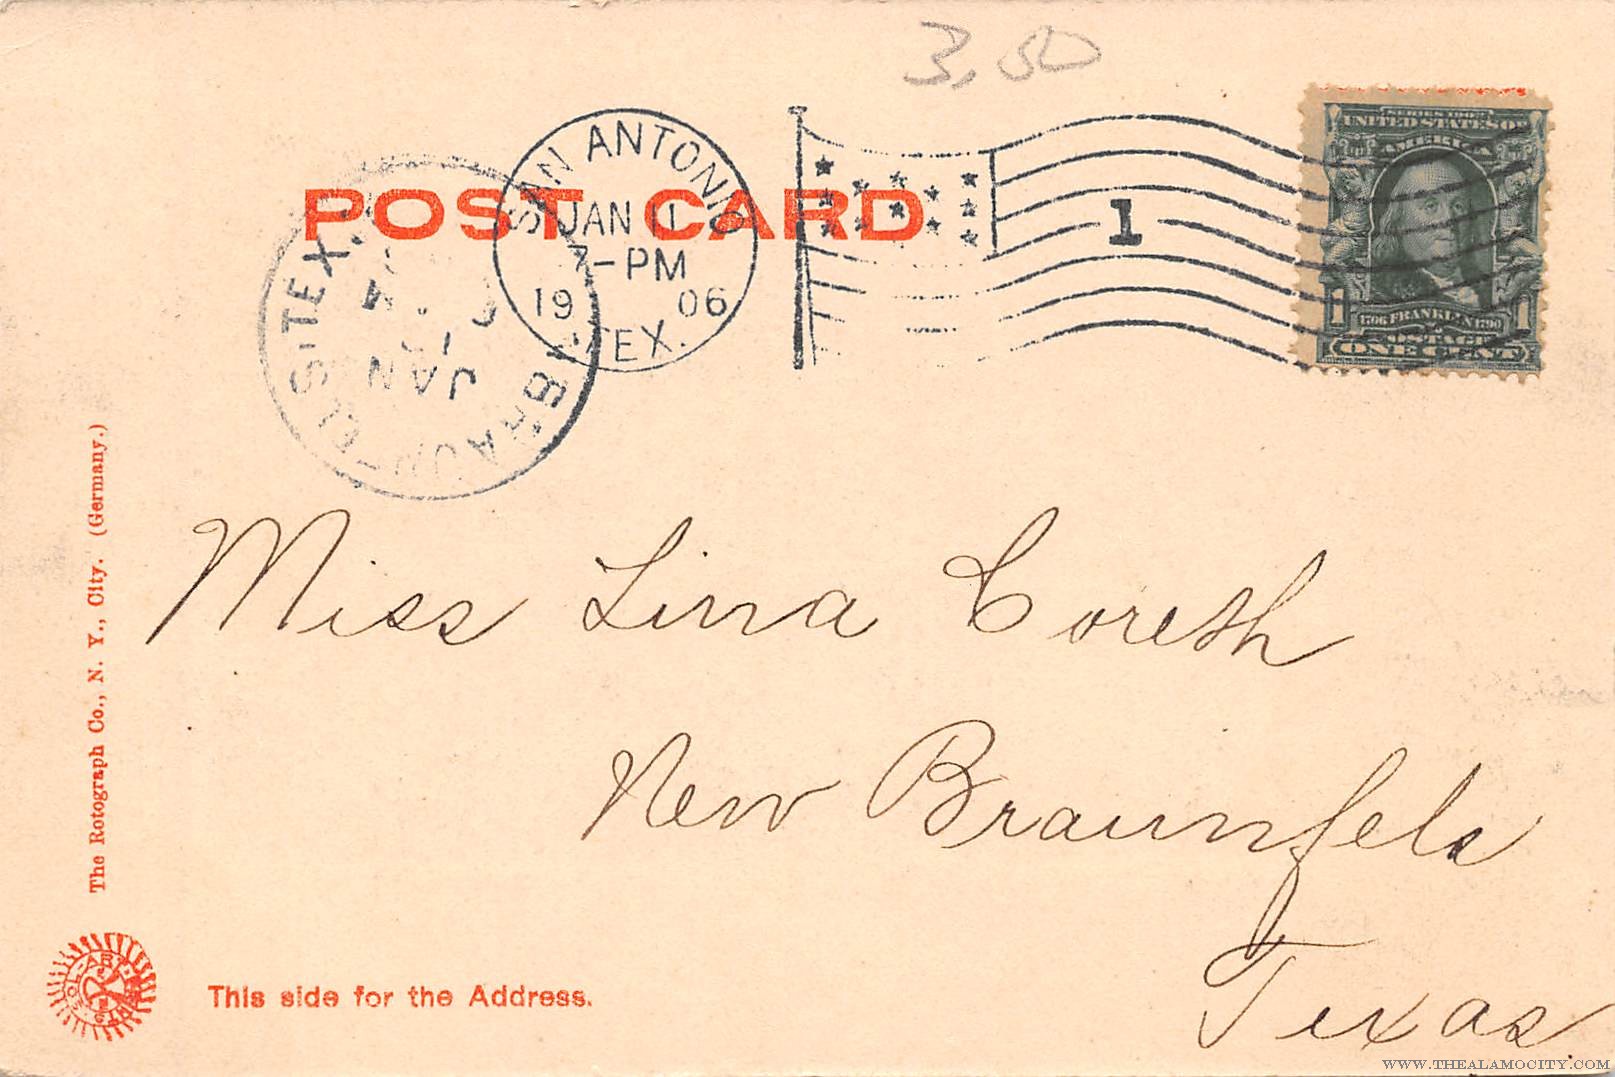 3.50
POST CARD
SAN ANTONIO
JAN 11
7-PM
19 06
TEX.
1
TEX.
JAN
BRAUN
SERIES 1902
UNITED STATES OF
AMERICA
1706 FRANKLIN 1790
1 1
POSTAGE
ONE CENT
Miss Lina Coreth
New Braunfels
Texas
The Rotograph Co., N. Y., City. (Germany.)
SOL-ART
This side for the Address.
WWW.THEALAMOCITY.COM